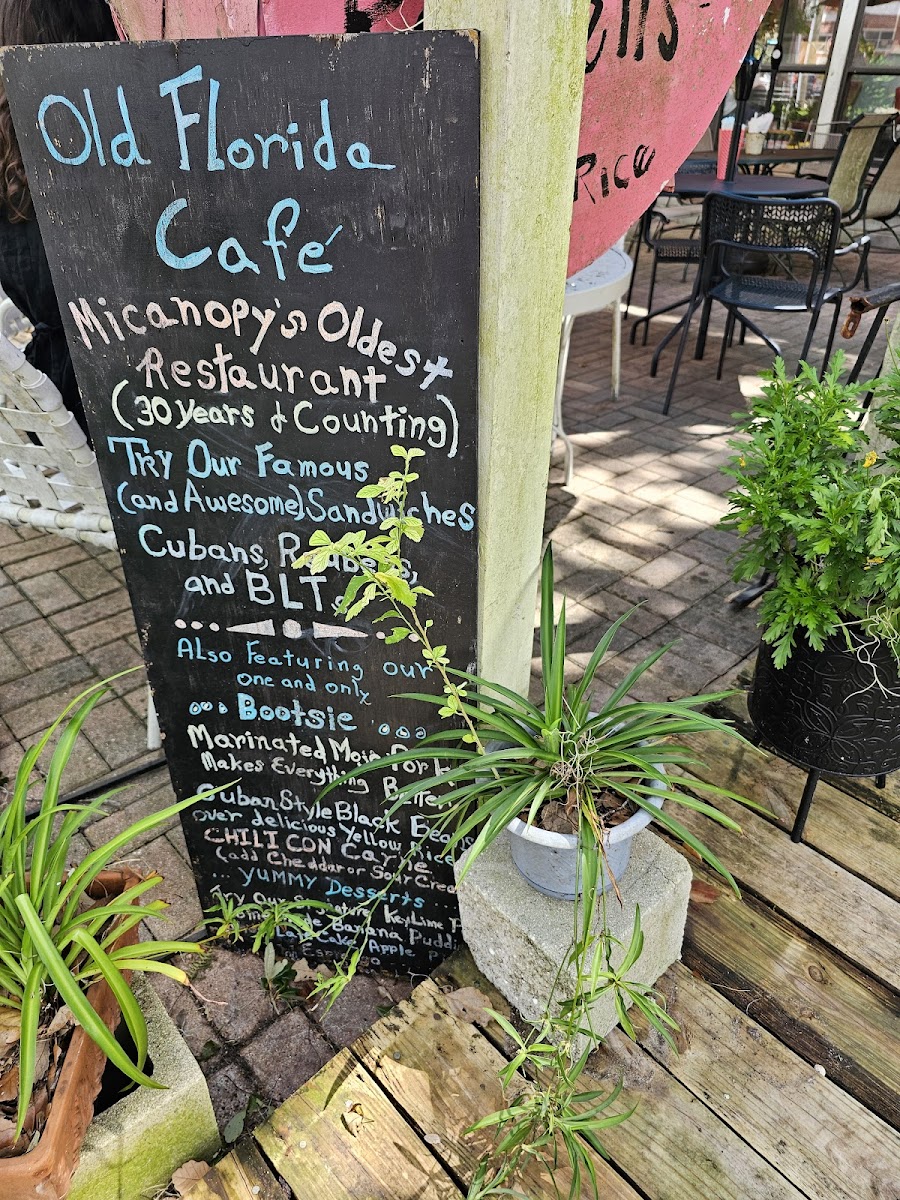 Old Florida
Café
Micanopy's Oldest
Restaurant
(30 Years & Counting)
Try Our Famous
(and Awesome) Sandwiches
Cubans, Reubens,
and BLT
Also Featuring our
one and only
Bootsie
Marinated Mojo Pork
Makes Everything Better
Cuban Style Black Beans
over delicious Yellow Rice
CHILI CON Carne
(add Cheddar or Sour Cream
... YUMMY Desserts
Try Our Signature Key Lime P
Banana Pudding
Cake, Apple
Rico